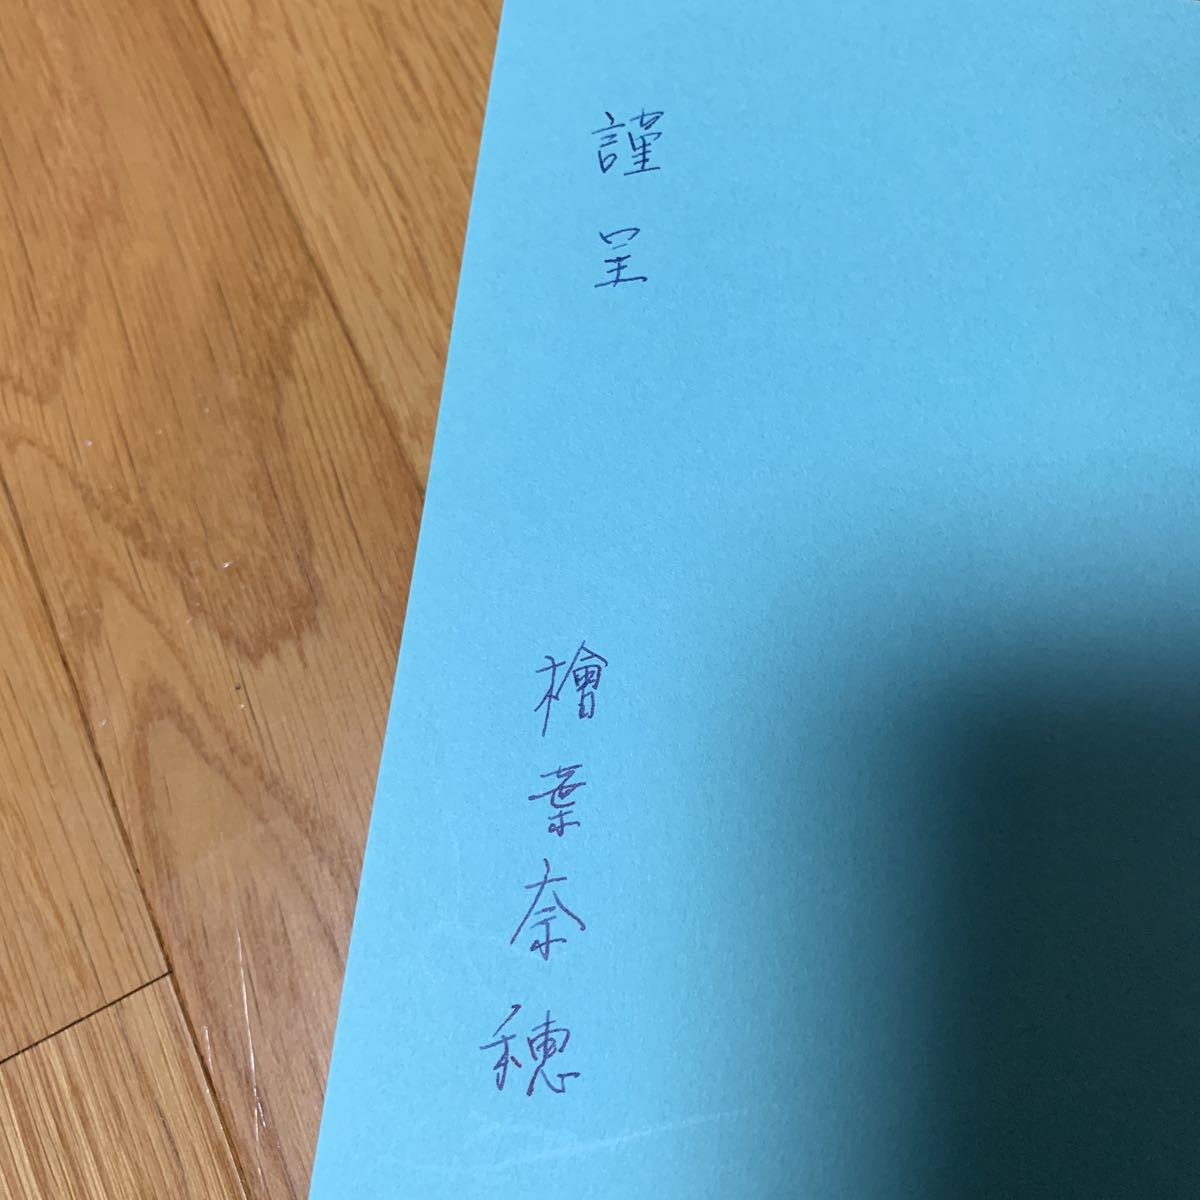 謹呈
檜葉奈穂